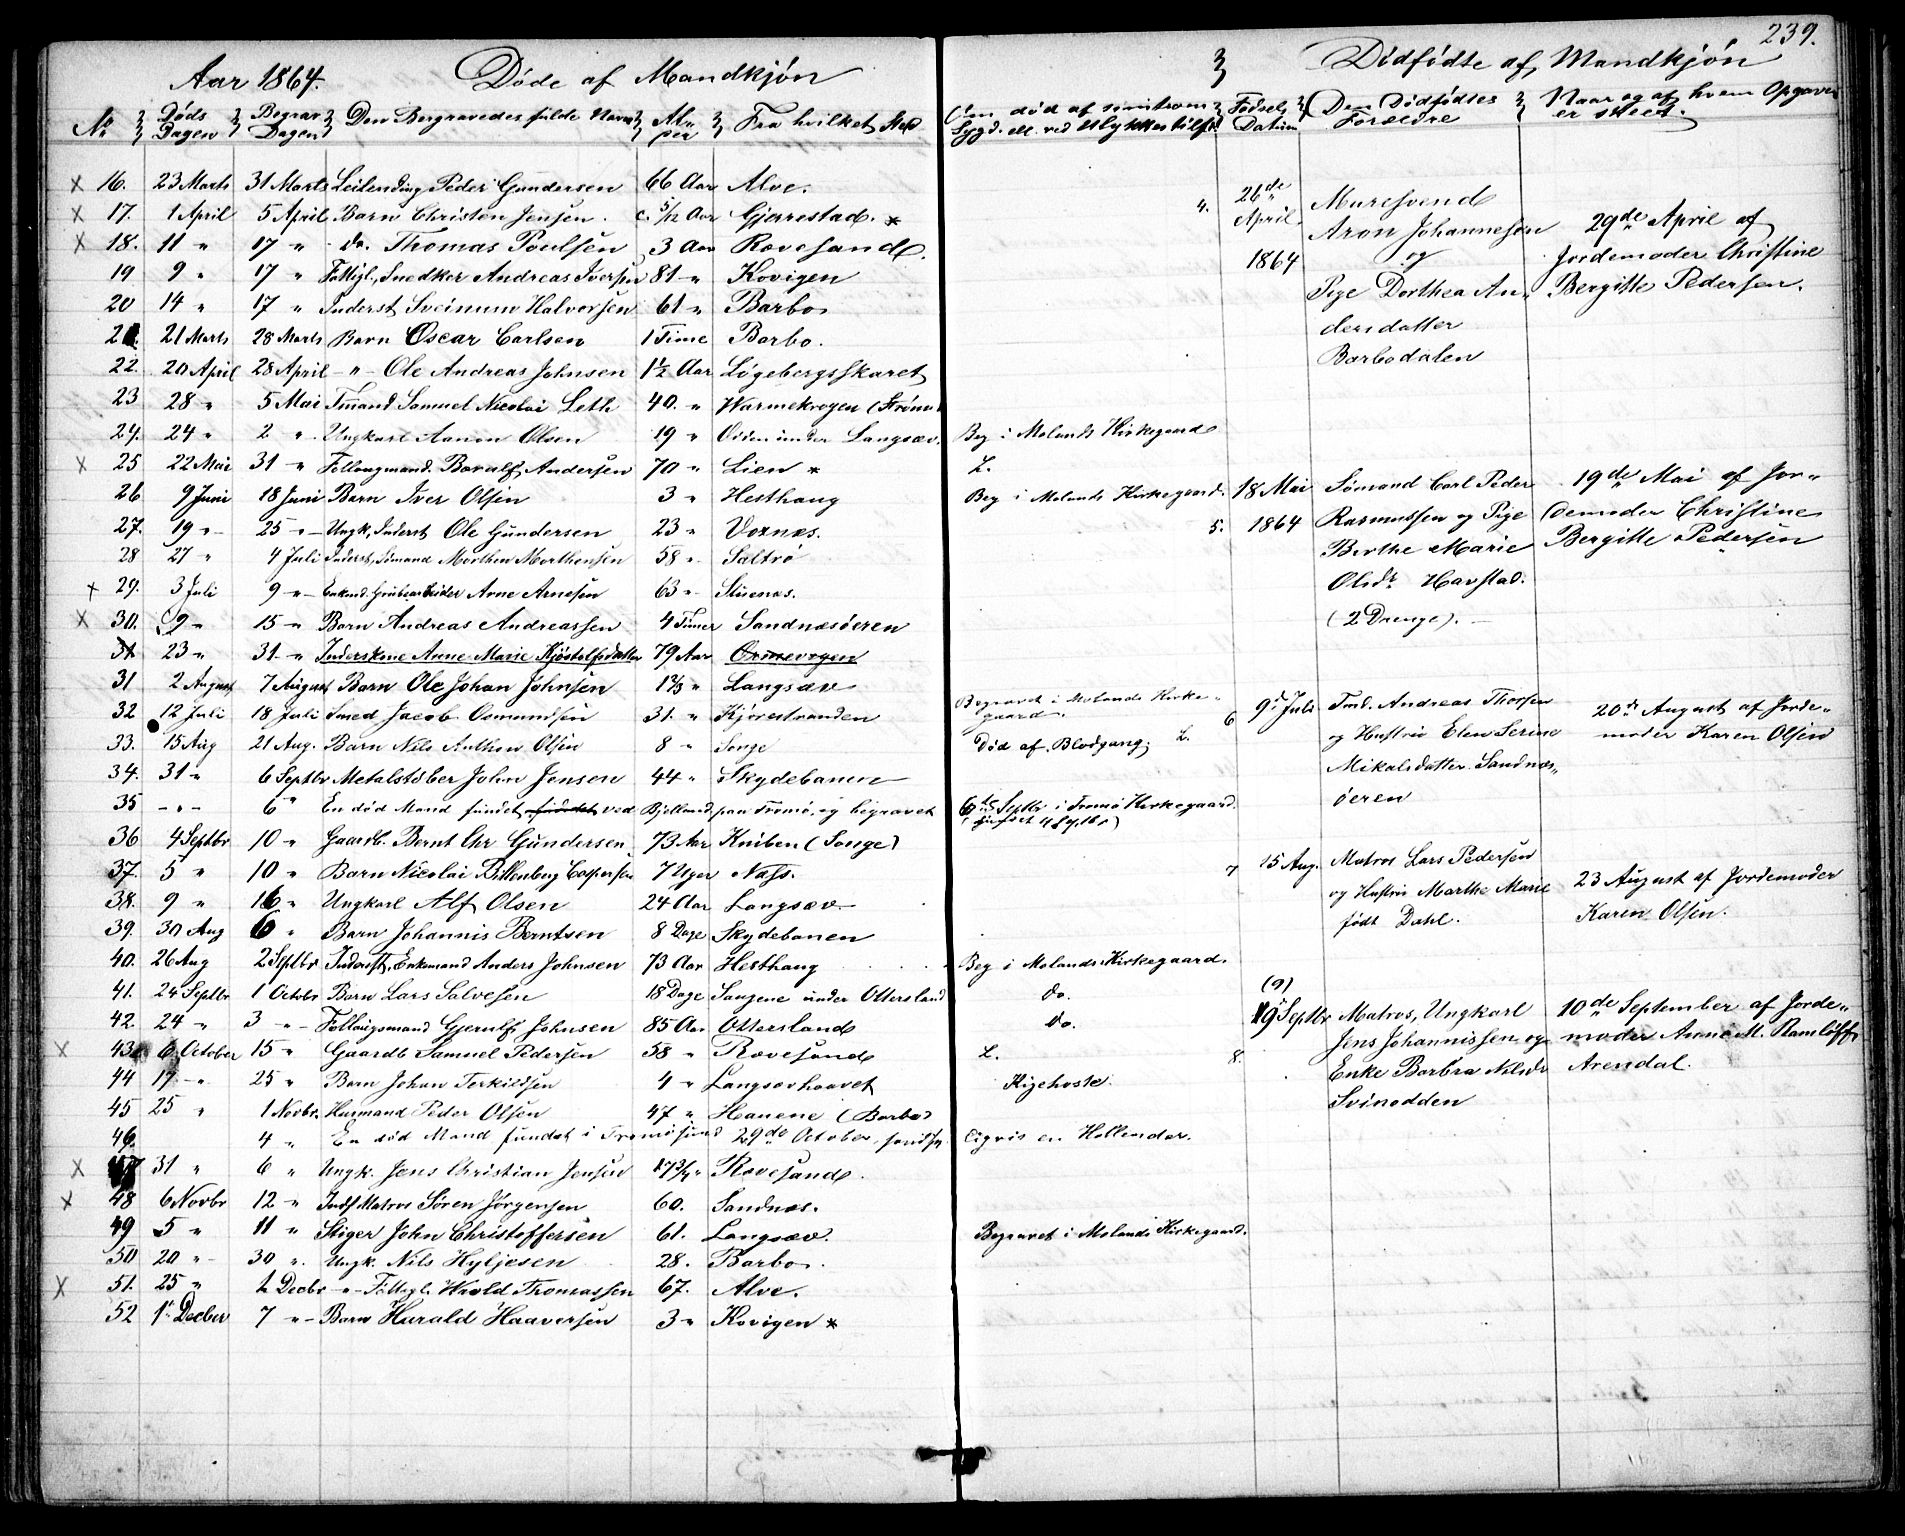 239.
Aar 1864. Døde af Mandkjøn
Dødfødte af Mandkjøn
No Døds Dagen Begrav Dagen Den Begravedes fulde Navn Alder Fra hvilket Sted
Om død af smitsom Sygd. ell. ved Ulykkestilfd. Fødsels Datum Den Dødfødtes Forældre Naar og af hvem Opgaven er skeet.
16. 23 Marts 31 Marts Leilending Peder Gundersen 66 Aar Alve.
17. 1 April 5 April Barn Christen Jensen. c. 5/12 Aar Gjerrestad. *
18. 11 " 17 " do. Thomas Poulsen 3 Aar Rævesand.
19 9 " 17 " Fattigl. Snedker Andreas Iversen 81 " Kovigen
20 14 " 17 " Inderst Sveinum Halvorsen 61 " Barbo
21. 21 Marts 28 Marts Barn Oscar Carlsen 1 Time Barbo.
22. 20 April 28 April " Ole Andreas Johnsen 1½ Aar Løgebergsskaret
23 28 " 5 Mai Tmand Samuel Nicolai Leth 40. " Warmekrogen (Strømm
24. 24 " 2 " Ungkarl Aanon Olsen 19 " Odden under Langsæv. Beg i Molands Kirkegaard
25 22 Mai 31 " Follaugmand. Borulf Andersen 70 " Lien * L.
26 9 Juni 18 Juni Barn Iver Olsen 3 " Hesthaug Beg i Molands Kirkegaard.
27. 19 " 25 " Ungk. Inderst Ole Gundersen 23 " Voxnæs.
28 27 " 4 Juli Inderst, Sømand Morthen Morthensen 58 " Saltrø
29. 3 Juli 9 " Enkmd. Grubearbeider Arne Arnesen 63 " Stuenæs.
30. 9 " 15 " Barn Andreas Andreassen 4 Timer Sandnæsøeren
31 23 " 31 " Inderskone Anne Marie Kjøstelfsdatter 79 Aar Ormevogen
31 2 August 7 August Barn Ole Johan Johnsen 1⅔ " Langsæv Begravet i Molands Kirkegaard.
32 12 Juli 18 Juli Smed Jacob Osmundsen 31. " Kjørestranden
33. 15 Aug 21 Aug. Barn Nils Anthon Olsen 8 " Songe Død af Blodgang. L.
34. 31 " 6 Septbr Metalstøber John Jensen 44 " Skydebanen
35 " " 6 " En død Mand fundet ved Bjelland paa Tromø, og begravet 6te Septbr i Tromø Kirkegaard.
36 4 Septbr 10 " Gaardb. Bernt Chr Gundersen 73 Aar Kniben (Songe)
37. 5 " 10 " Barn Nicolai Billenberg Caspersen 7 Uger Næs.
38. 9 " 16 " Ungkarl Alf Olsen 24 Aar Langsæv
39. 30 Aug 6 " Barn Johannis Berntsen 8 Dage Skydebanen
40. 26 Aug 2 Septbr Inderst, Enkemand Anders Johnsen 73 Aar Hesthaug Beg i Molands Kirkegaard.
41. 24 Septbr 1 Octobr Barn Lars Salvesen 18 Dage Sangene under Ottersland do.
42. 24 " 3 " Follaugsmand Gjerulf Johnsen 85 Aar Ottersland do.
43. 6 October 15 " Gaardb Samuel Pedersen 58 " Rævesand L.
44 17 " 25 " Barn Johan Terkildsen 4 " Langsævhaavet Kigehoste.
45 25 " 1 Novbr. Huusmand Peder Olsen 47 " Hauene (Barbo)
46. 4 " En død Mand fundet i Tromøsund 29de October, sandsynligvis en Hollender.
47 31 " 6 " Ungk. Jens Christian Jensen 17¾ " Rævesand
48 6 Novbr 12 " Indst Matros Søren Jørgensen 60. Sandnæs.
49 5 " 11 " Stiger John Christoffersen 61. Langsæv. Begravet i Molands Kirkegaard.
50 20 " 30 " Ungk. Nils Hyljesen 28. Barbo.
51. 25 " 2 Decbr " Fattigl. Wrold Thomassen 67. Alve.
52 1' Decber 7 " Barn Harald Haaversen 3 " Kovigen *
4. 26de April 1864
Muresvend
Aron Johannesen
og
Pige Dorthea An-
dersdatter
Barbodalen
29de April af
Jordemoder Christine
Bergitte Pedersen.
5. 18 Mai 1864
Sømand Carl Peder
Rasmussen og Pige
Berthe Marie
Olsdr Havstad.
(2 Drenge).
19de Mai af Jor-
demoder Christine
Bergitte Pedersen
6 9d Juli
Tmd. Andreas Thorsen
og Hustrue Elen Serine
Mikalsdatter. Sandnæs-
øeren
20de August af Jorde-
moder Karen Olsen
7 15 Aug.
Matros Lars Pedersen
og Hustru Marthe Marie
født Dahl.
23 August af Jordemoder
Karen Olsen.
8. (9) 19 Septbr
Matros, Ungkarl
Jens Johannissen og
Enke Barbra Nilsdr
Svinodden
10de September af Jorde-
moder Anne M. Ramløff
Arendal.